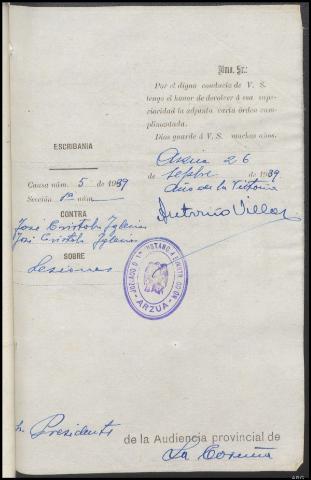 Ilmo. Sr.:
Por el digno conducto de V. S.
tengo el honor de devolver á esa supe-
rioridad la adjunta carta órden cum-
plimentada.
Dios guarde á V. S. muchos años.
Arzúa 26
de Septbre de 1939
Año de la Victoria
Antonio Villar
ESCRIBANIA
Causa núm. 5 de 1939
Sección 1ª núm.
CONTRA
José Cristobo Iglesias
José Cristobo Iglesias
SOBRE
Lesiones
ARZUA
Sr. Presidente
de la Audiencia provincial de
La Coruña